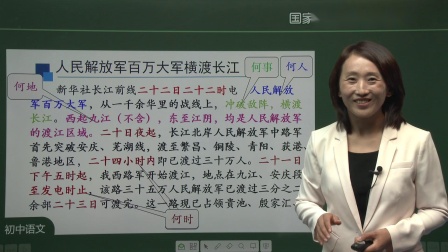 国家
人民解放军百万大军横渡长江
何事
何人
何地
新华社长江前线二十二日二十二时电 人民解放
军百万大军,从一千余华里的战线上,冲破敌阵,横渡
长江。西起九江(不含),东至江阴,均是人民解放军
的渡江区域。二十日夜起,长江北岸人民解放军中路军
首先突破安庆、芜湖线,渡至繁昌、铜陵、青阳、荻港、
鲁港地区,二十四小时内即已渡过三十万人。二十一日
下午五时起,我西路军开始渡江,地点在九江、安庆段
至发电时止,该路三十五万人民解放军已渡过三分之二
余部二十三日可渡完。这一路现已占领贵池、殷家汇、
何时
初中语文